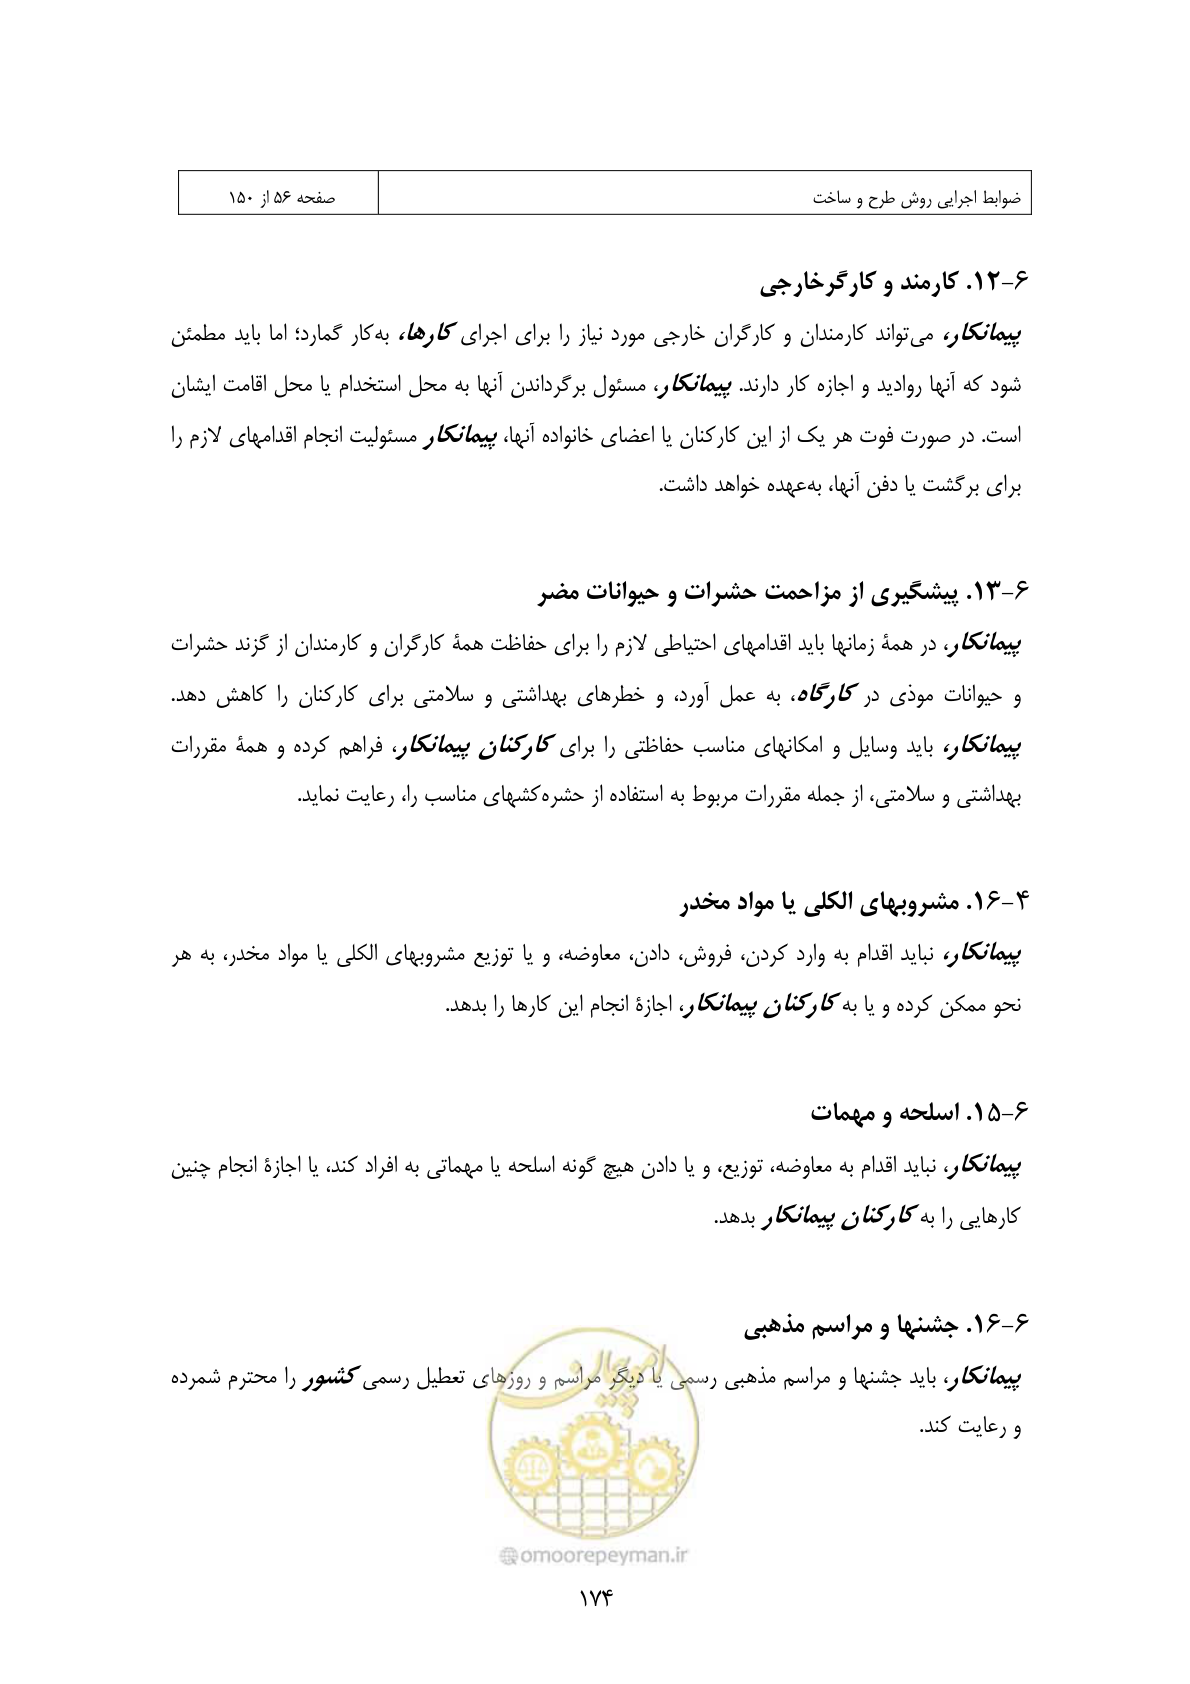 ضوابط اجرایی روش طرح و ساخت
صفحه ۵۶ از ۱۵۰
۶-۱۲. کارمند و کارگرخارجی
پیمانکار، می‌تواند کارمندان و کارگران خارجی مورد نیاز را برای اجرای کارها، به‌کار گمارد؛ اما باید مطمئن
شود که آنها روادید و اجازه کار دارند. پیمانکار، مسئول برگرداندن آنها به محل استخدام یا محل اقامت ایشان
است. در صورت فوت هر یک از این کارکنان یا اعضای خانواده آنها، پیمانکار مسئولیت انجام اقدامهای لازم را
برای برگشت یا دفن آنها، به‌عهده خواهد داشت.
۶-۱۳. پیشگیری از مزاحمت حشرات و حیوانات مضر
پیمانکار، در همۀ زمانها باید اقدامهای احتیاطی لازم را برای حفاظت همۀ کارگران و کارمندان از گزند حشرات
و حیوانات موذی در کارگاه، به عمل آورد، و خطرهای بهداشتی و سلامتی برای کارکنان را کاهش دهد.
پیمانکار، باید وسایل و امکانهای مناسب حفاظتی را برای کارکنان پیمانکار، فراهم کرده و همۀ مقررات
بهداشتی و سلامتی، از جمله مقررات مربوط به استفاده از حشره‌کشهای مناسب را، رعایت نماید.
۴-۱۶. مشروبهای الکلی یا مواد مخدر
پیمانکار، نباید اقدام به وارد کردن، فروش، دادن، معاوضه، و یا توزیع مشروبهای الکلی یا مواد مخدر، به هر
نحو ممکن کرده و یا به کارکنان پیمانکار، اجازۀ انجام این کارها را بدهد.
۶-۱۵. اسلحه و مهمات
پیمانکار، نباید اقدام به معاوضه، توزیع، و یا دادن هیچ گونه اسلحه یا مهماتی به افراد کند، یا اجازۀ انجام چنین
کارهایی را به کارکنان پیمانکار بدهد.
۶-۱۶. جشنها و مراسم مذهبی
پیمانکار، باید جشنها و مراسم مذهبی رسمی یا دیگر مراسم و روزهای تعطیل رسمی کشور را محترم شمرده
و رعایت کند.
امور پیمان
@omoorepeyman.ir
۱۷۴